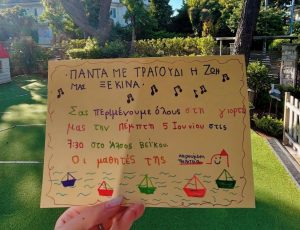 ·ΠΑΝΤΑ ΜΕ ΤΡΑΓΟΥΔΙ Η ΖΩΗ
ΜΑΣ ΞΕΚΙΝΑ·
Σας περιμένουμε όλους στη γιορτή
μας την Πέμπτη 5 Ιουνίου στις
7:30 στο Άλσος Βεΐκου.
Οι μαθητές της